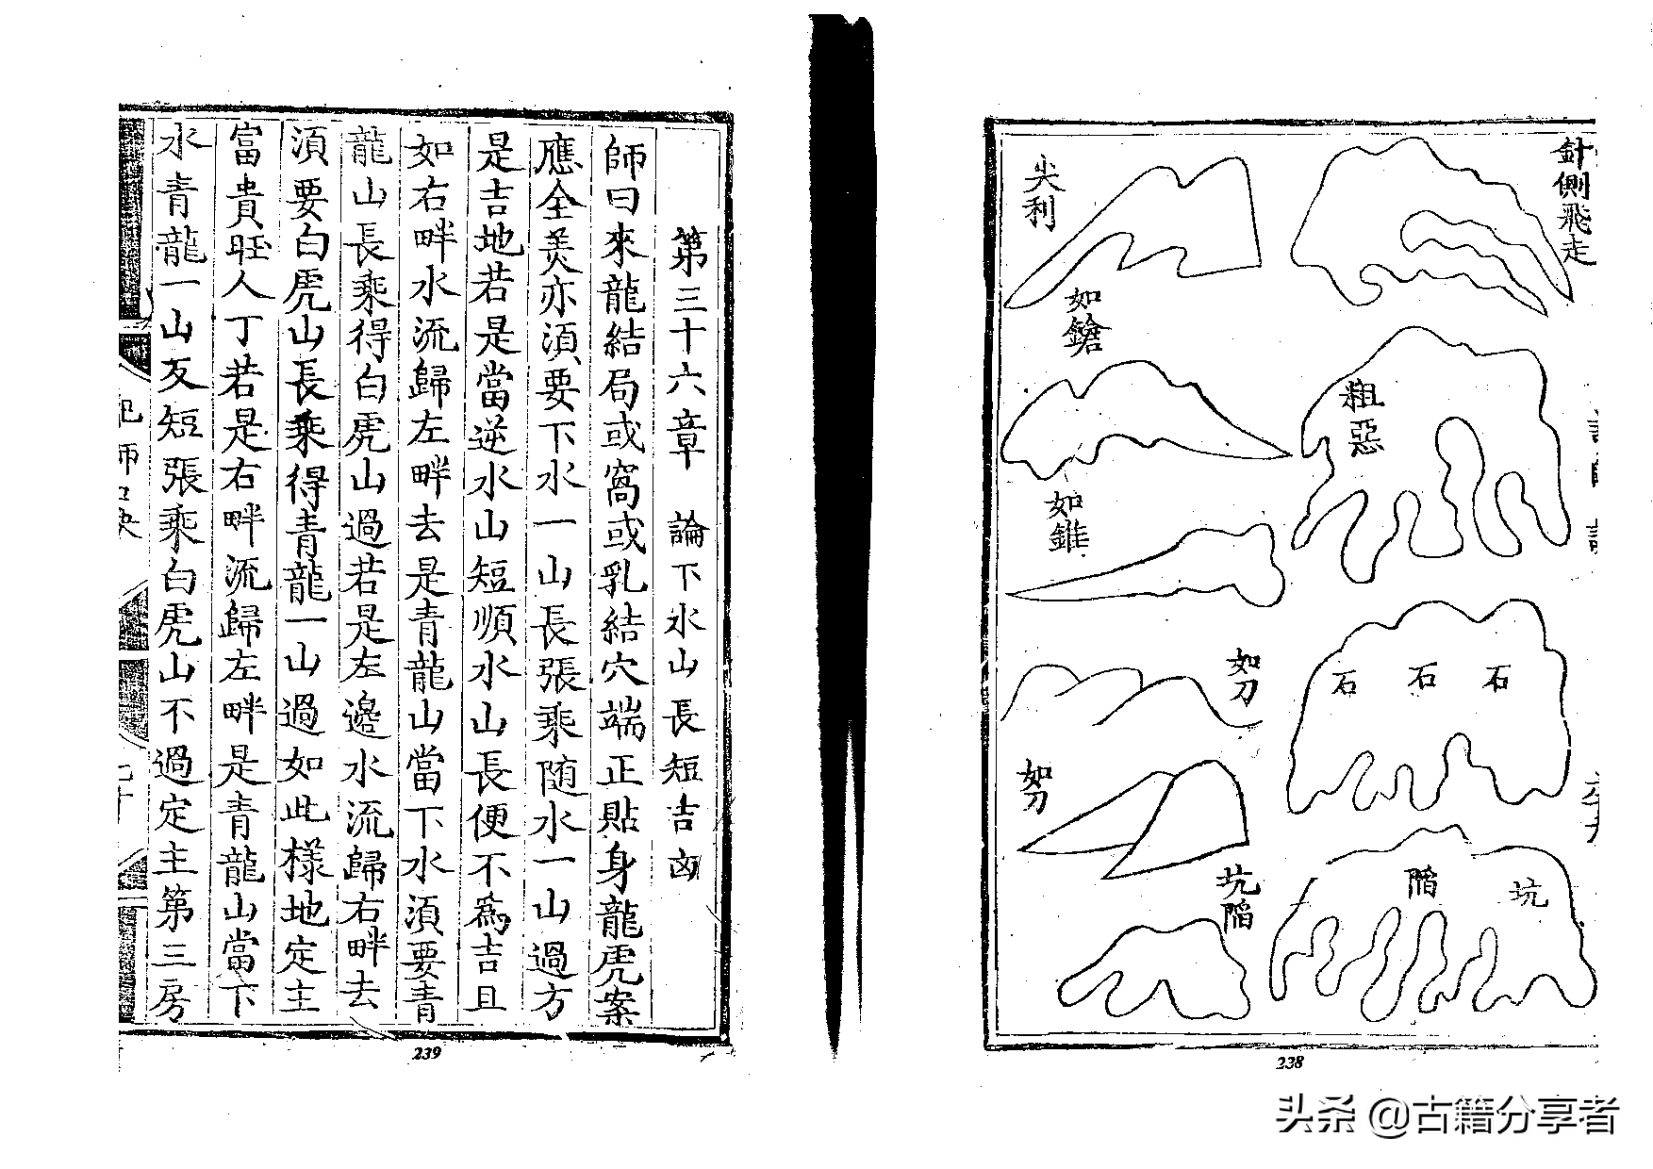 針側飛走
尖利
如鎗
粗惡
如錐
石
石
石
如刀
如刀
坑
陷
坑陷
238
第三十六章 論下水山長短吉凶
師曰來龍結局或窩或乳結穴端正貼身龍虎案
應全美亦須要下水一山長張乘随水一山過方
是吉地若是當逆水山短順水山長便不為吉且
如右畔水流歸左畔去是青龍山當下水須要青
龍山長乘得白虎山過若是左邊水流歸右畔去
須要白虎山長乘得青龍一山過如此樣地定主
富貴旺人丁若是右畔流歸左畔是青龍山當下
水青龍一山反短張乘白虎山不過定主第三房
239
头条 @古籍分享者